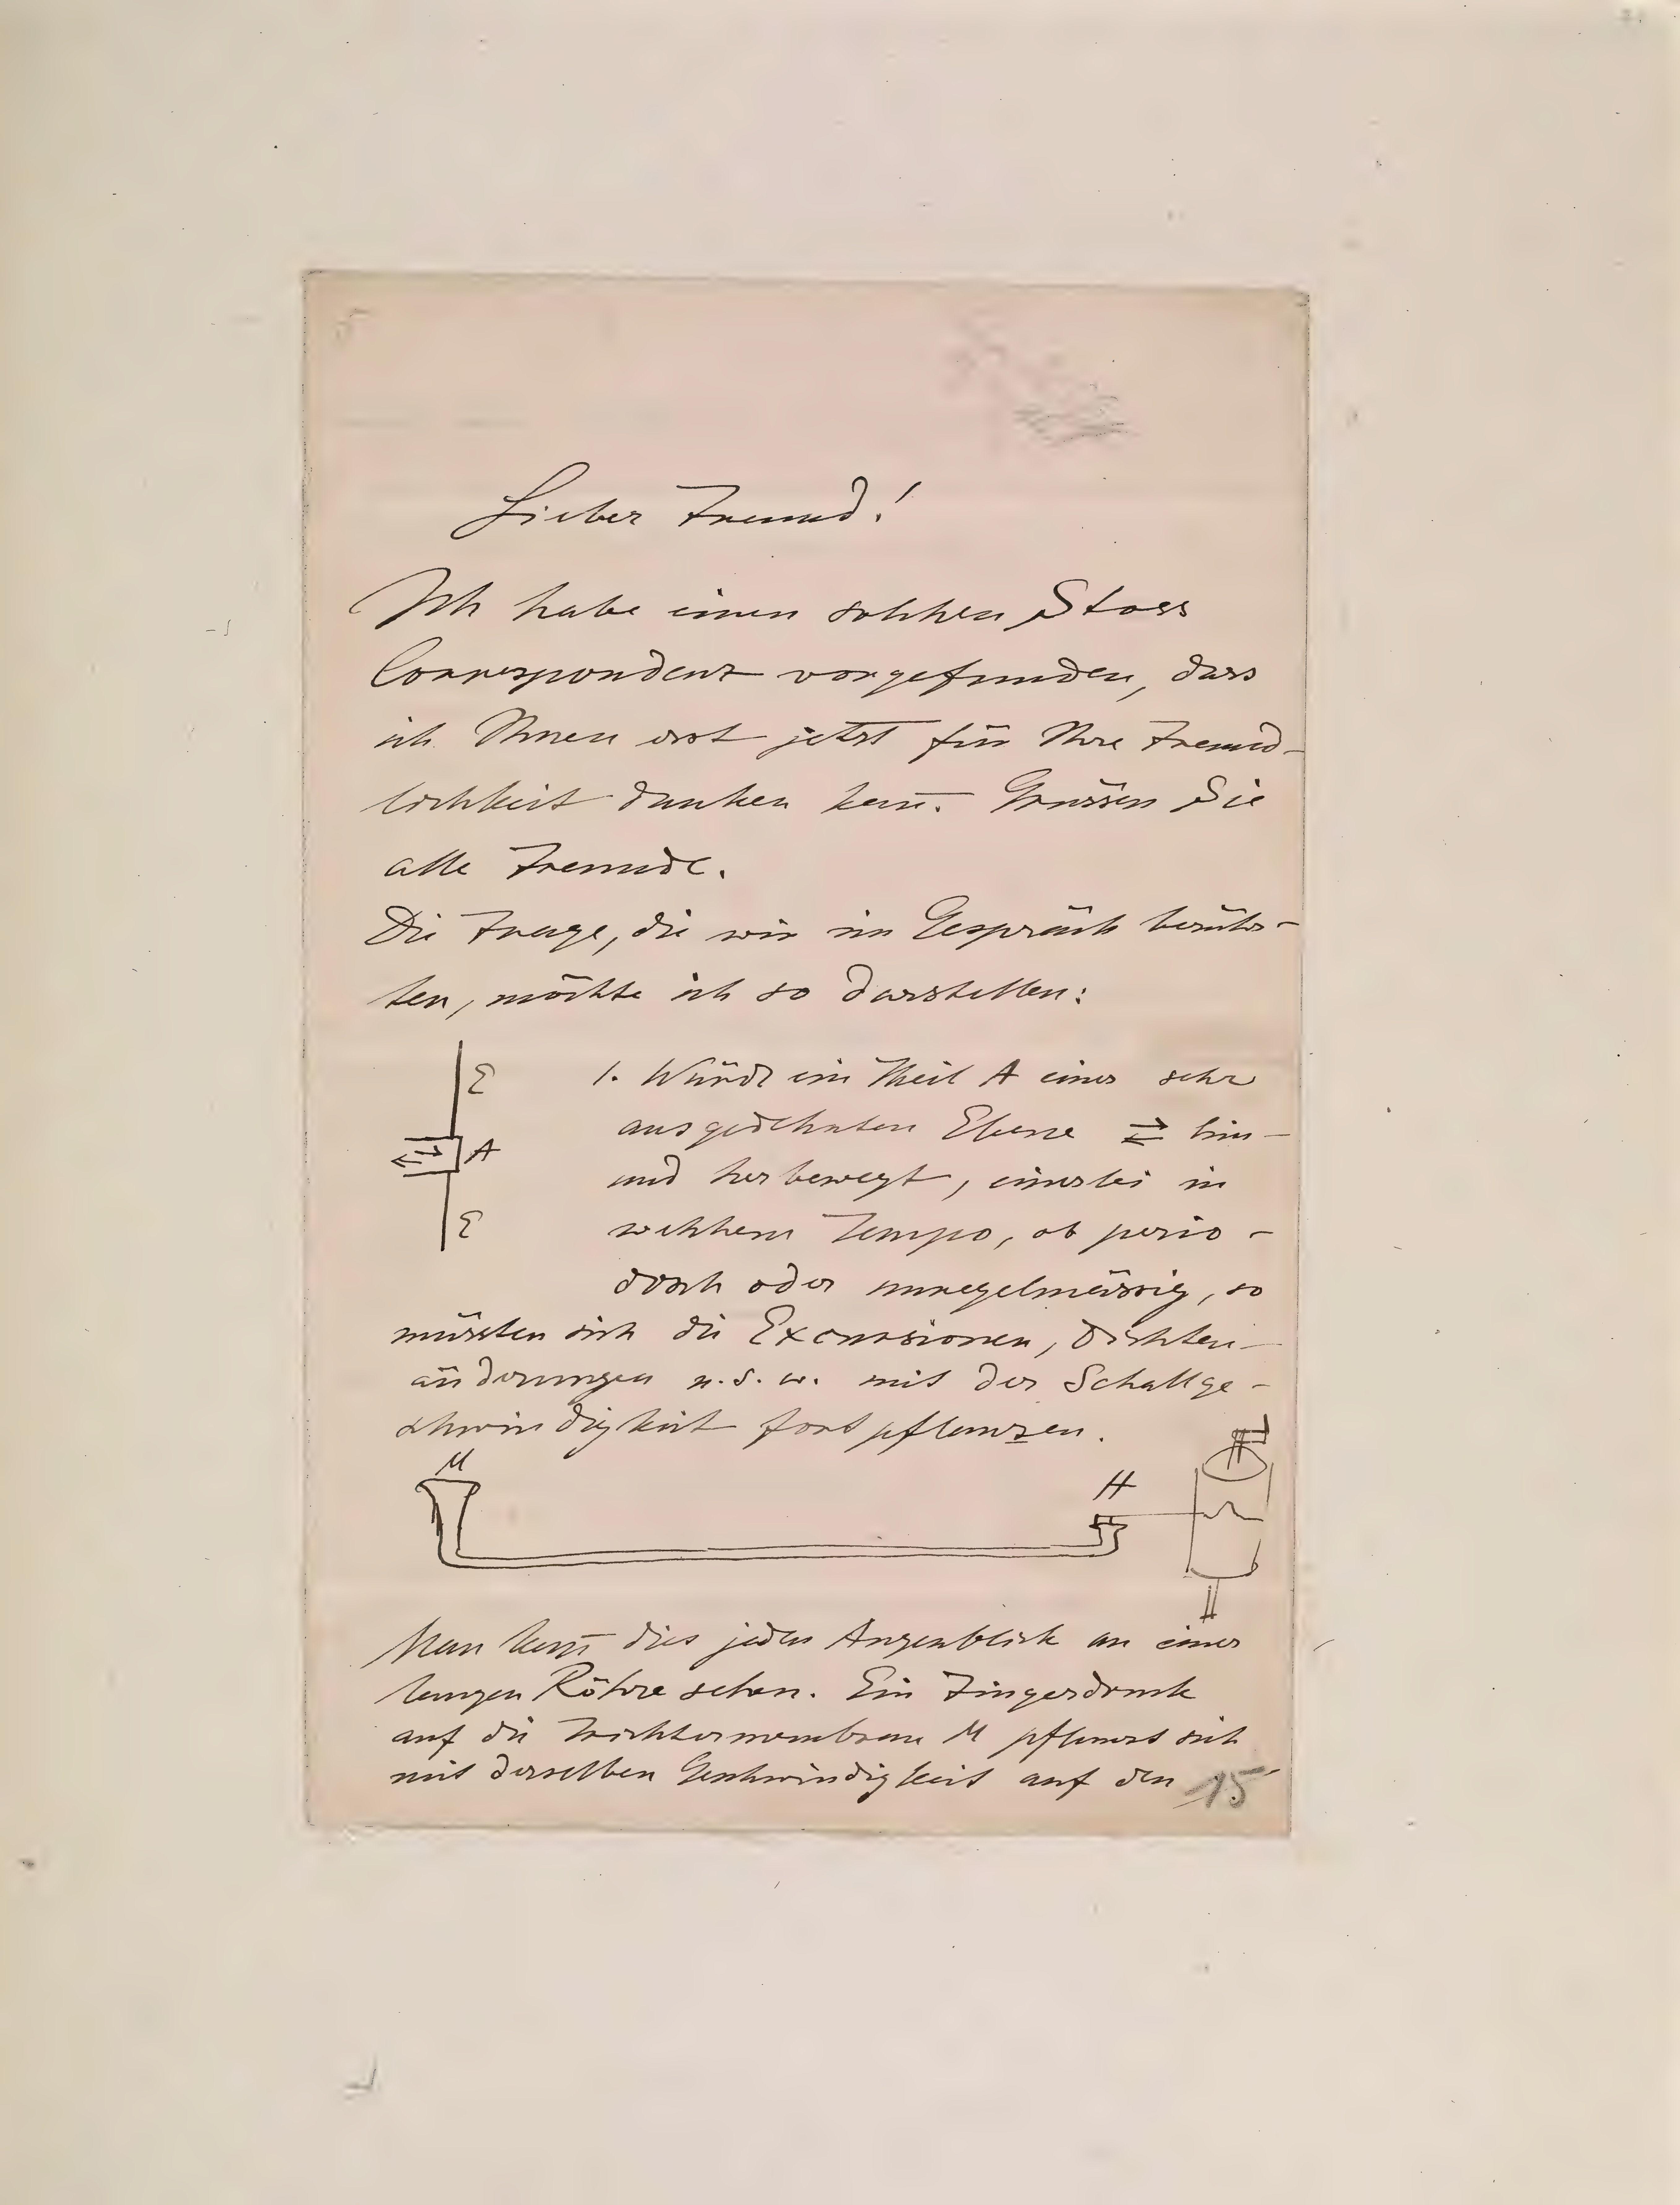 Lieber Freund!
Ich habe einen solchen Stoss
Correspondenz vorgefunden, dass
ich Ihnen erst jetzt für Ihre Freund-
lichkeit danken kañ. Grüssen Sie
alle Freunde.
Die Frage, die wir im Gespräch berühr-
ten, möchte ich so darstellen:
E
A
E
1. Würde ein Theil A einer sehr
ausgedehnten Ebene ⇄ hin-
und herbewegt, einerlei in
welchem Tempo, ob perio-
disch oder unregelmässig, so
müssten sich die Excursionen, Dichten-
änderungen u.s.w. mit der Schallge-
schwindigkeit fortpflanzen.
M
H
Man kañ dies jeden Augenblick an einer
langen Röhre sehen. Ein Fingerdruck
auf die Trichtermembran M pflanzt sich
mit derselben Geschwindigkeit auf den
15